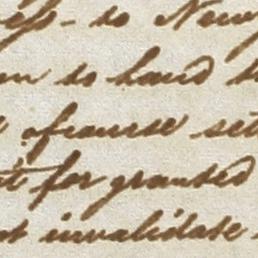 to New
to hand
ofcourse set
for granted
invalidate